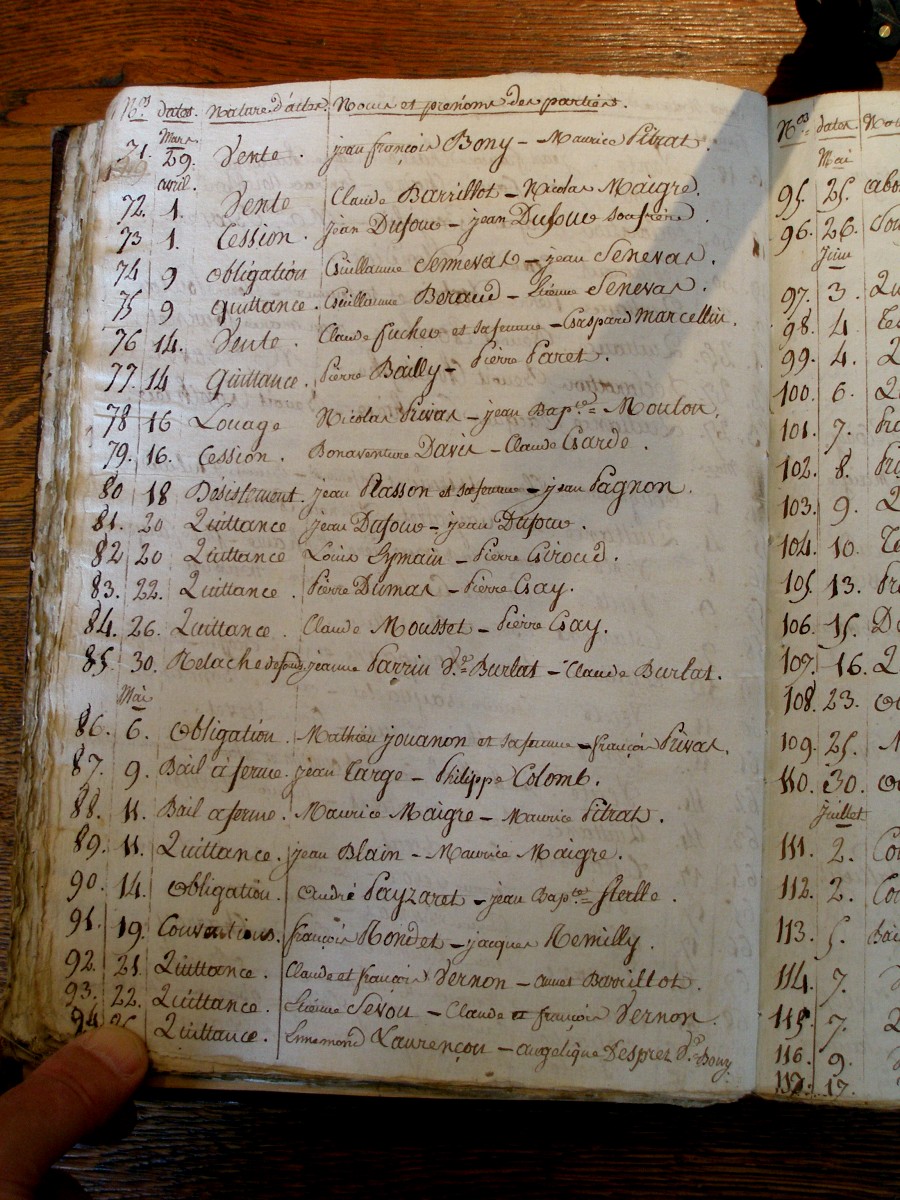 Nos dates. Nature d'actes. Noms et prénoms des parties.
Mars
71. 29. Vente. jean françois Bony - Maurice Pitrat
avril.
72. 1. Vente Claude Barrillot - Nicolas Maigre.
73 1. Cession. jean Dufour - jean Dufour son frère.
74 9 obligation Guillaume Sennevas - jean Senevas.
75 9 quittance. Guillaume Beraud - Etienne Senevas.
76 14. Vente. Claude et sa femme - Gaspard Marcellin.
77. 14 Quittance. Pierre Bailly - Pierre Paret.
78 16 Louage Nicolas Privas - jean Bapte= Moulon.
79. 16. Cession. Bonaventure David - Claude Garde.
80 18 Désistement. jean Plasson et sa femme - jean Pagnon.
81. 20 Quittance jean Dufour - jean Dufour.
82 20 Quittance Louis Eymain - Pierre Giroud.
83. 22. Quittance. Pierre Dumas - Pierre Gay.
84. 26. Quittance. Claude Mousset - Pierre Gay.
85. 30. Relache de fonds jeanne Parrin Ve= Burlat - Claude Burlat.
Mai
86. 6. Obligation. Mathieu jouanon et sa femme - françois Privas.
87. 9. Bail à ferme. jean Large - Philippe Colomb.
88. 11. Bail a ferme. Maurice Maigre - Maurice Pitrat.
89. 11. Quittance. jean Blain - Maurice Maigre.
90. 14. obligation. André Payzaret - jean Bapte= Sterlle.
91. 19. Conventions. françois Rondet - jacques Remilly.
92. 21. Quittance. Claude et françois Vernon - annet Barrillot.
93. 22. Quittance. Etienne Sevou - Claude et françois Vernon.
94 Quittance. Ennemond Laurençon - angelique Desprez Ve= Bony
Nos dates. No
Mai
95. 25.
96. 26.
Juin
97. 3. Qu
98. 4.
99. 4. Q
100. 6. Q
101. 7.
102. 8.
103. 9. Q
104. 10.
105. 13.
106. 15.
107. 16. Q
108. 23.
109. 25.
110. 30.
Juillet
111. 2. Co
112. 2. Co
113. 5. Bai
114. 7.
115. 7. Q
116. 9.
117. 17.